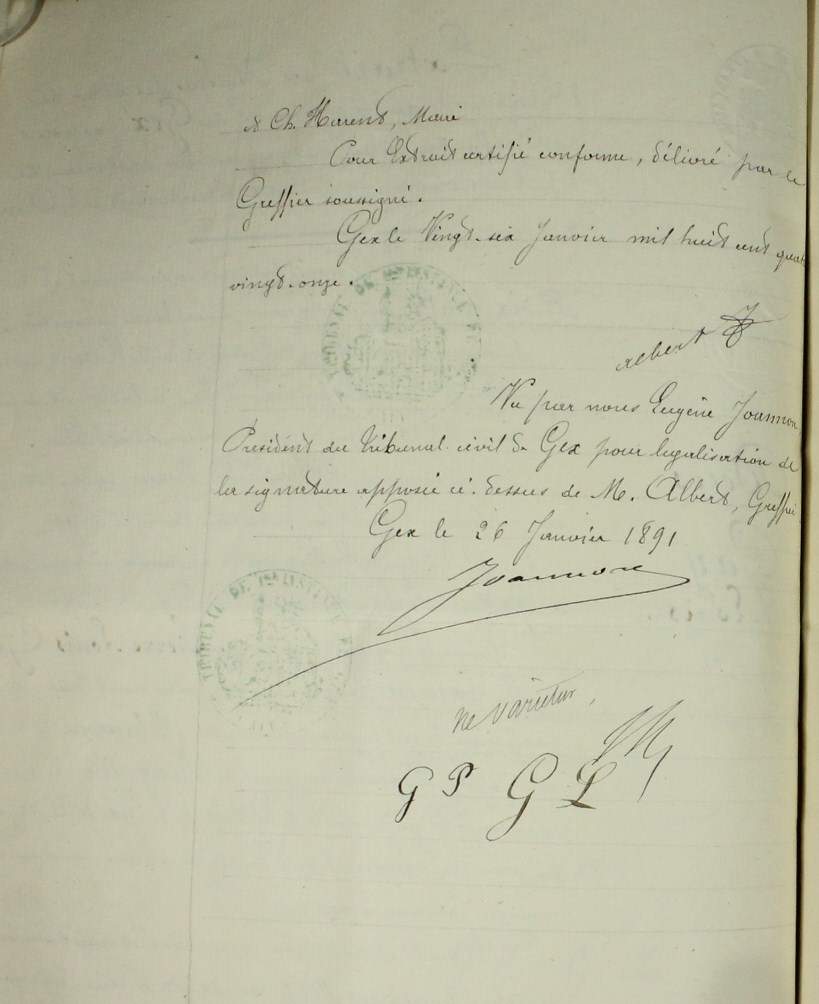 & Ch. Harent, Maire
Pour Extrait certifié conforme, délivré par le
Greffier soussigné.
Gex le Vingt-six Janvier mil huit cent quat
vingt-onze.
Albert
Vu par nous Eugène Joannon
Président du Tribunal civil de Gex pour légalisation de
la signature apposée ci-dessus de M. Albert, Greffier
Gex le 26 Janvier 1891
Joannon
TRIBUNAL DE
TRIBUNAL DE
ne varietur,
G P G L